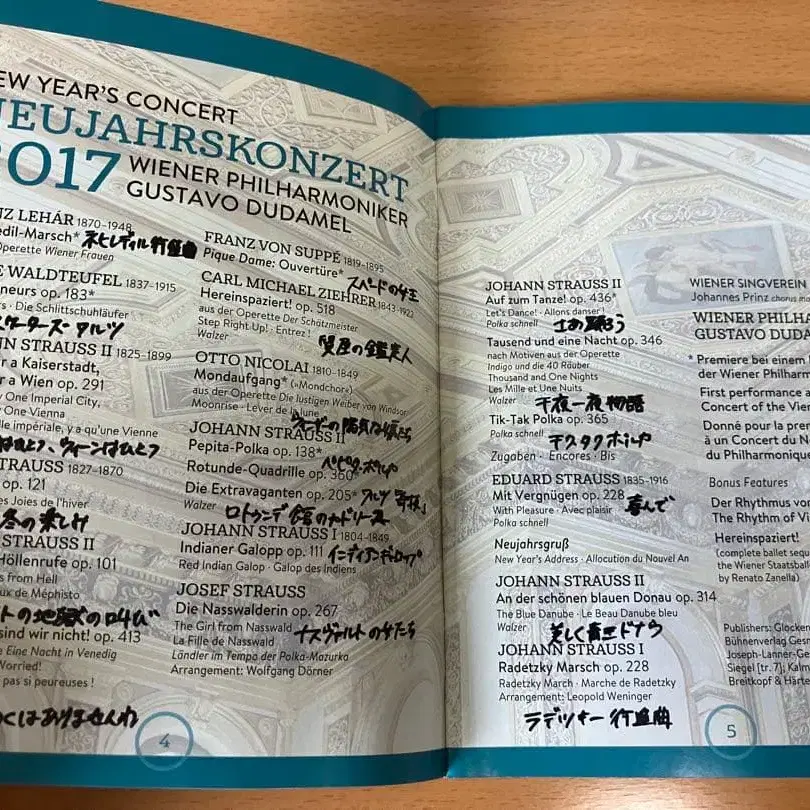 EW YEAR'S CONCERT
NEUJAHRSKONZERT
2017 WIENER PHILHARMONIKER
GUSTAVO DUDAMEL
NZ LEHÁR 1870–1948
edil-Marsch* ネヒレディル行進曲
Operette Wiener Frauen
E WALDTEUFEL 1837–1915
neurs op. 183*
rs · Die Schlittschuhläufer
スケーターズ・ワルツ
NN STRAUSS II 1825–1899
r a Kaiserstadt,
r a Wien op. 291
y One Imperial City,
y One Vienna
lle impériale, y a qu'une Vienne
ウィーンはひとつ
TRAUSS 1827–1870
op. 121
es Joies de l'hiver
冬の楽しみ
STRAUSS II
Höllenrufe op. 101
s from Hell
ux de Méphisto
トの地獄の叫び
sind wir nicht! op. 413
e Eine Nacht in Venedig
Worried!
pas si peureuses !
くはありませんわ
FRANZ VON SUPPÉ 1819–1895
Pique Dame: Ouvertüre* スペードの女王
CARL MICHAEL ZIEHRER 1843–1922
Hereinspaziert! op. 518
aus der Operette Der Schätzmeister
Step Right Up! · Entrez !
Walzer
質屋の鑑定人
OTTO NICOLAI 1810–1849
Mondaufgang* («Mondchor»)
aus der Operette Die lustigen Weiber von Windsor
Moonrise · Lever de la lune
ウィンザーの陽気な女たち
JOHANN STRAUSS II
Pepita-Polka op. 138*
ペピタ・ポルカ
Rotunde-Quadrille op. 360*
Die Extravaganten op. 205* ワルツ
Walzer
ロトゥンデ館のカドリーユ
JOHANN STRAUSS I 1804–1849
Indianer Galopp op. 111 インディアンギャロップ
Red Indian Galop · Galop des Indiens
JOSEF STRAUSS
Die Nasswalderin op. 267
The Girl from Nasswald
La Fille de Nasswald
ナスヴァルトの女たち
Ländler im Tempo der Polka-Mazurka
Arrangement: Wolfgang Dörner
4
JOHANN STRAUSS II
Auf zum Tanze! op. 436*
Let's Dance! · Allons danser !
Polka schnell
さあ踊ろう
Tausend und eine Nacht op. 346
nach Motiven aus der Operette
Indigo und die 40 Räuber
Thousand and One Nights
Les Mille et Une Nuits
Walzer
千夜一夜物語
Tik-Tak Polka op. 365
Polka schnell
チクタクポルカ
Zugaben · Encores · Bis
EDUARD STRAUSS 1835–1916
Mit Vergnügen op. 228
喜んで
With Pleasure · Avec plaisir
Polka schnell
Neujahrsgruß
New Year's Address · Allocution du Nouvel An
JOHANN STRAUSS II
An der schönen blauen Donau op. 314
The Blue Danube · Le Beau Danube bleu
Walzer
美しく青きドナウ
JOHANN STRAUSS I
Radetzky Marsch op. 228
Radetzky March · Marche de Radetzky
Arrangement: Leopold Weninger
ラデツキー行進曲
WIENER SINGVEREIN
Johannes Prinz chorus
WIENER PHILH
GUSTAVO DUDAM
* Premiere bei einem
der Wiener Philharm
First performance a
Concert of the Vien
Donné pour la premi
à un Concert du N
du Philharmonique
Bonus Features
Der Rhythmus vor
The Rhythm of Vi
Hereinspaziert!
(complete ballet sequ
the Wiener Staatsball
by Renato Zanella)
Publishers: Glocken
Bühnenverlag Gesm
Joseph-Lanner-Ges
Siegel [tr. 7]; Kalm
Breitkopf & Härte
5